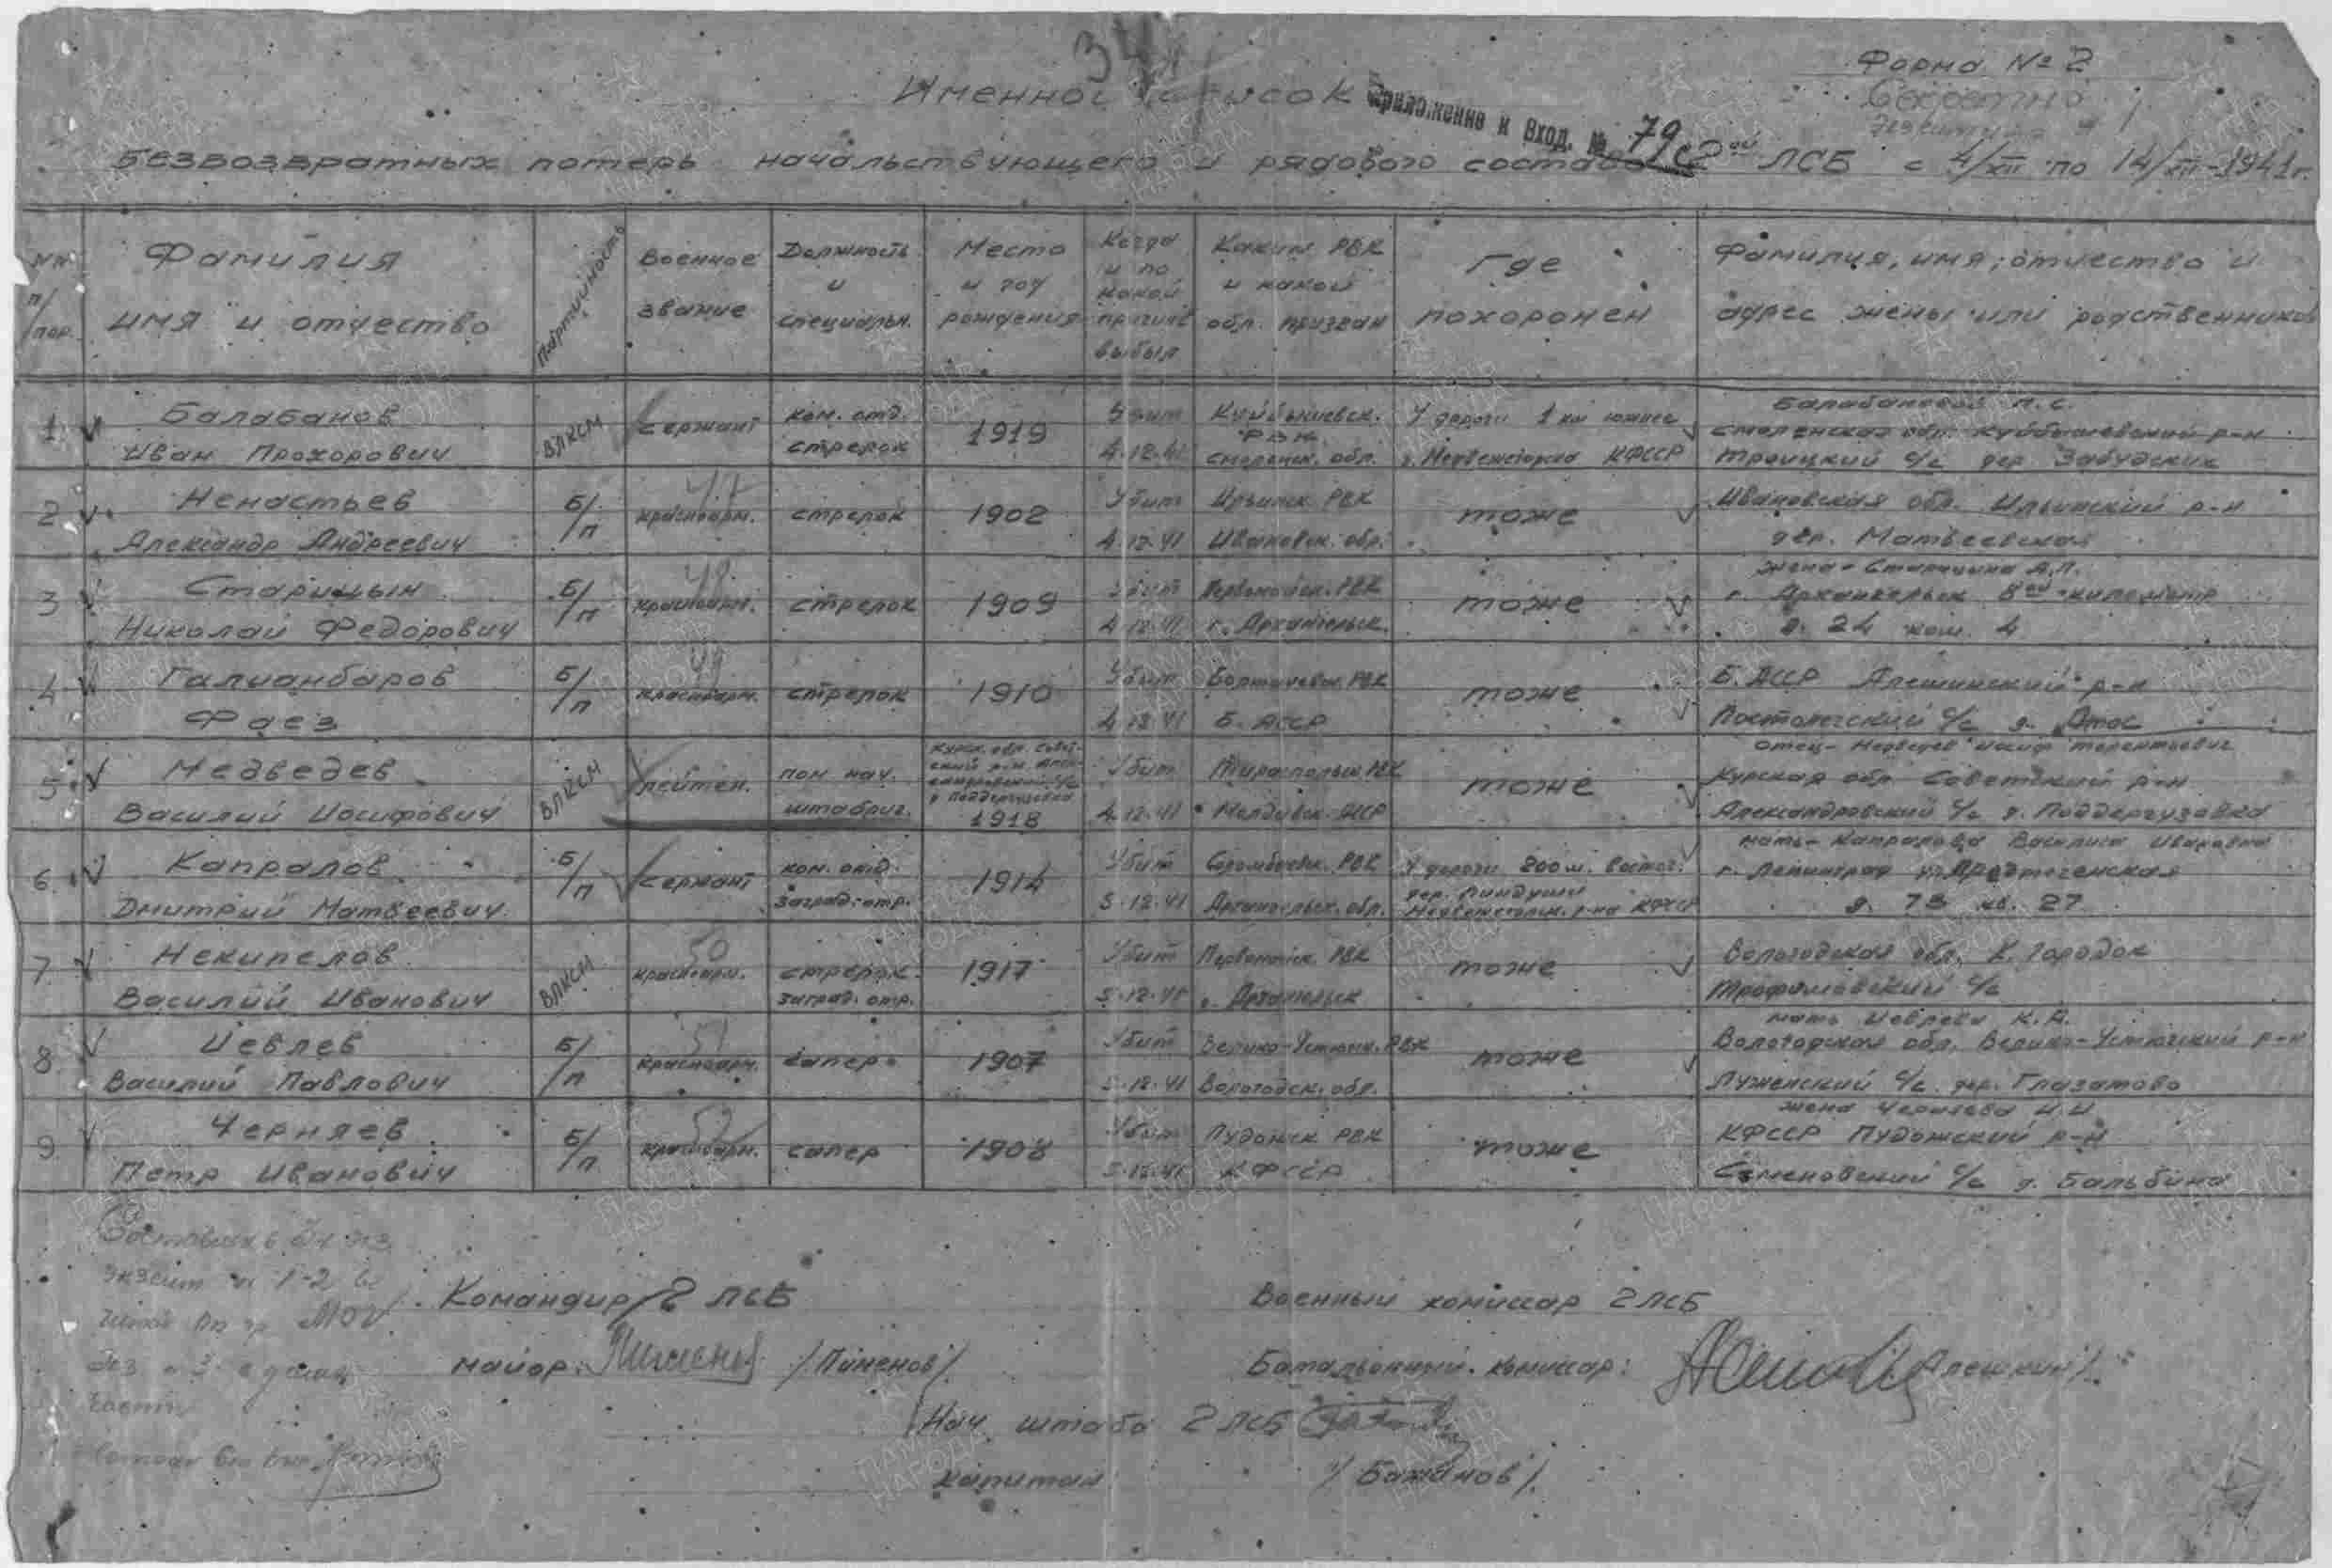 34
Форма № 2
Секретно
Именной список
Приложение к Вход. № 79с
безвозвратных потерь начальствующего и рядового состава 2ой ЛСБ с 4/XII по 14/XII-1941г.
№№ п/пор.
Фамилия
имя и отчество
партийность
Военное
звание
Должность
и
специальн.
Место
и год
рождения
Когда
и по
какой
причине
выбыл
Каким РВК
и какой
обл. призван
Где
похоронен
Фамилия, имя, отчество и
адрес жены или родственников
1
Балабанов
Иван Прохорович
ВЛКСМ
сержант
ком. отд.
стрелок
1919
Убит
4.12.41
Куйбышевск.
РВК
Смоленск. обл.
У дороги 1 км южнее
г. Медвежегорска КФССР
Балабановой П.С.
Смоленская обл. Куйбышевский р-н
Троицкий с/с дер.
2
Ненастьев
Александр Андреевич
Б/п
47
красноарм.
стрелок
1902
Убит
4.12.41
Ильинск. РВК
Ивановск. обл.
тоже
Ивановская обл. Ильинский р-н
дер. Матвеевская
3
Старицын
Николай Федорович
Б/п
48
красноарм.
стрелок
1909
Убит
4.12.41
Первомайск. РВК
г. Архангельск.
тоже
жена - Старицина А.П.
г. Архангельск 8ой километр
д. 24 ком. 4
4
Галианбаров
Фаез
Б/п
49
красноарм.
стрелок
1910
Убит
4.12.41
РВК
Б. АССР
тоже
Б. АССР р-н
с/с д.
5
Медведев
Василий Иосифович
ВЛКСМ
лейтен.
пом. нач.
штабриг.
Курск. обл. Совет-
ский р-н Алек-
сандровский с/с
д. Поддергузовка
1918
Убит
4.12.41
Тираспольск. РВК
Молдавск. АССР
тоже
отец - Медведев Иосиф Терентьевич
Курская обл. Советский р-н
Александровский с/с д. Поддергузовка
6
Капралов
Дмитрий Матвеевич
Б/п
сержант
ком. отд.
заград. отр.
1914
Убит
5.12.41
РВК
Архангельск. обл.
У дороги 200 м. восточ.
дер. Пиндуши
Медвежегорск. р-на КФССР
мать - Капралова Василиса Ивановна
г. Ленинград ул. Предтеченская
д. 73 кв. 27
7
Некипелов
Василий Иванович
ВЛКСМ
50
красноарм.
стрелок
заград. отр.
1917
Убит
5.12.41
Первомайск. РВК
г. Архангельск
тоже
Вологодская обл. К. Городок
Трофимовский с/с
8
Иевлев
Василий Павлович
Б/п
51
красноарм.
сапер
1907
Убит
5.12.41
Велико-Устюгск. РВК
Вологодск. обл.
тоже
мать Иевлева К.А.
Вологодская обл. Велико-Устюгский р-н
с/с дер. Глазатово
9
Черняев
Петр Иванович
Б/п
52
красноарм.
сапер
1908
Убит
5.12.41
Пудожск РВК
КФССР
тоже
жена Черняева
КФССР Пудожский р-н
Семеновский с/с д. Бальбина
Командир 2 ЛСБ
майор: /Пименов/
Военный комиссар 2 ЛСБ
Батальонный комиссар: /Алешкин/
Нач. штаба 2 ЛСБ
капитан /Бажанов/.